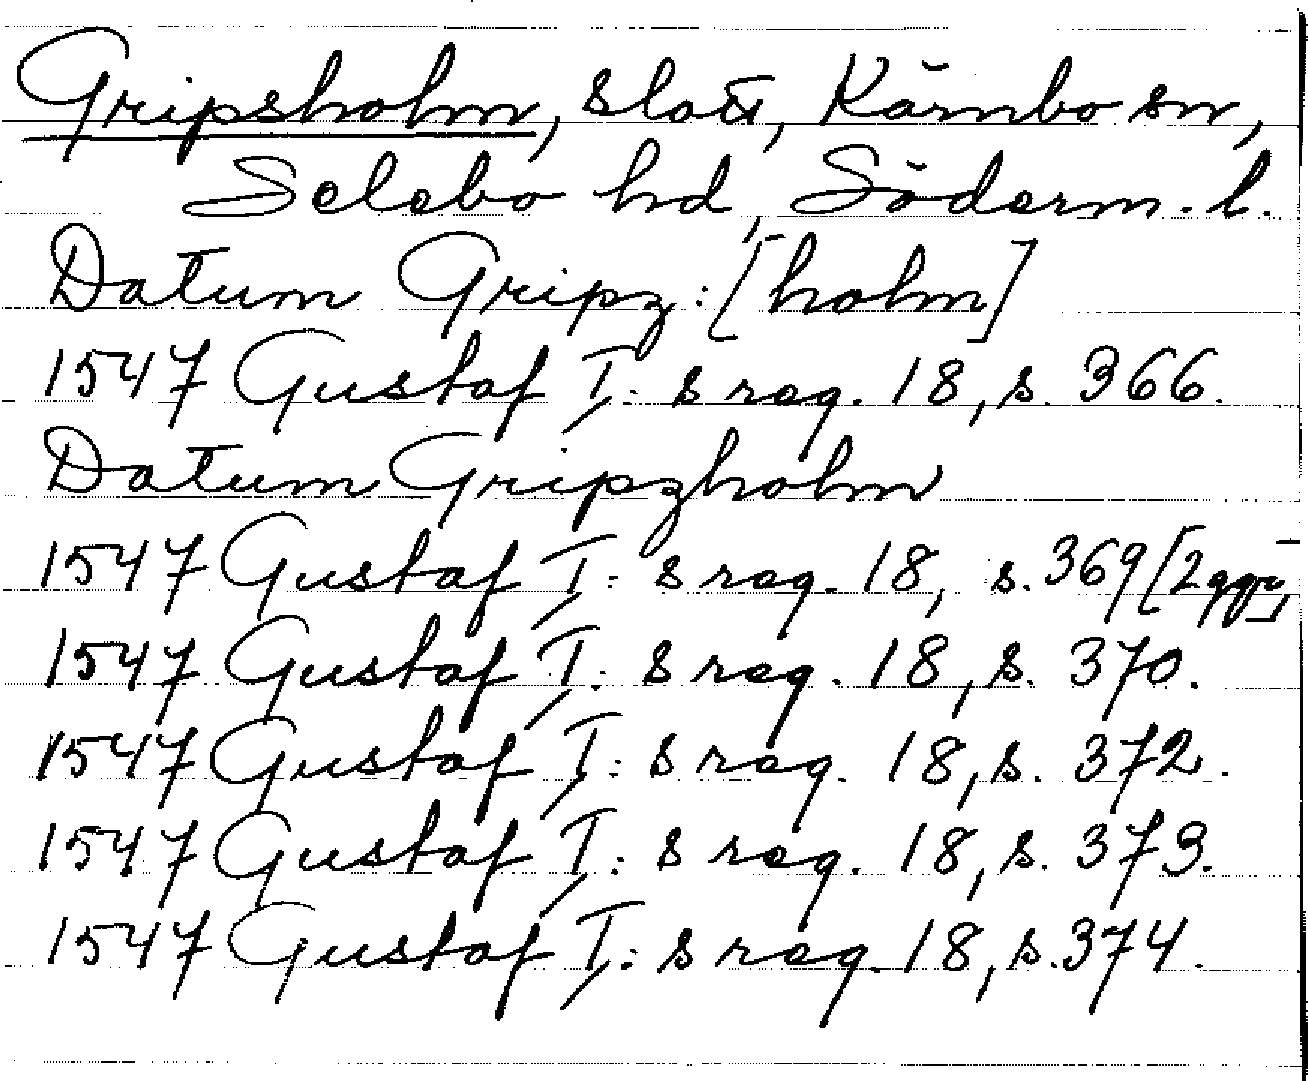 Gripsholm, slott, Kärnbo sn,
Selebo hd, Söderm. l.
Datum Gripz:[holm]
1547 Gustaf I:s reg. 18, s. 366.
Datum Gripzholm
1547 Gustaf I:s reg. 18, s. 369 [2 ggr],
1547 Gustaf I:s reg. 18, s. 370.
1547 Gustaf I:s reg. 18, s. 372.
1547 Gustaf I:s reg. 18, s. 373.
1547 Gustaf I:s reg. 18, s. 374.